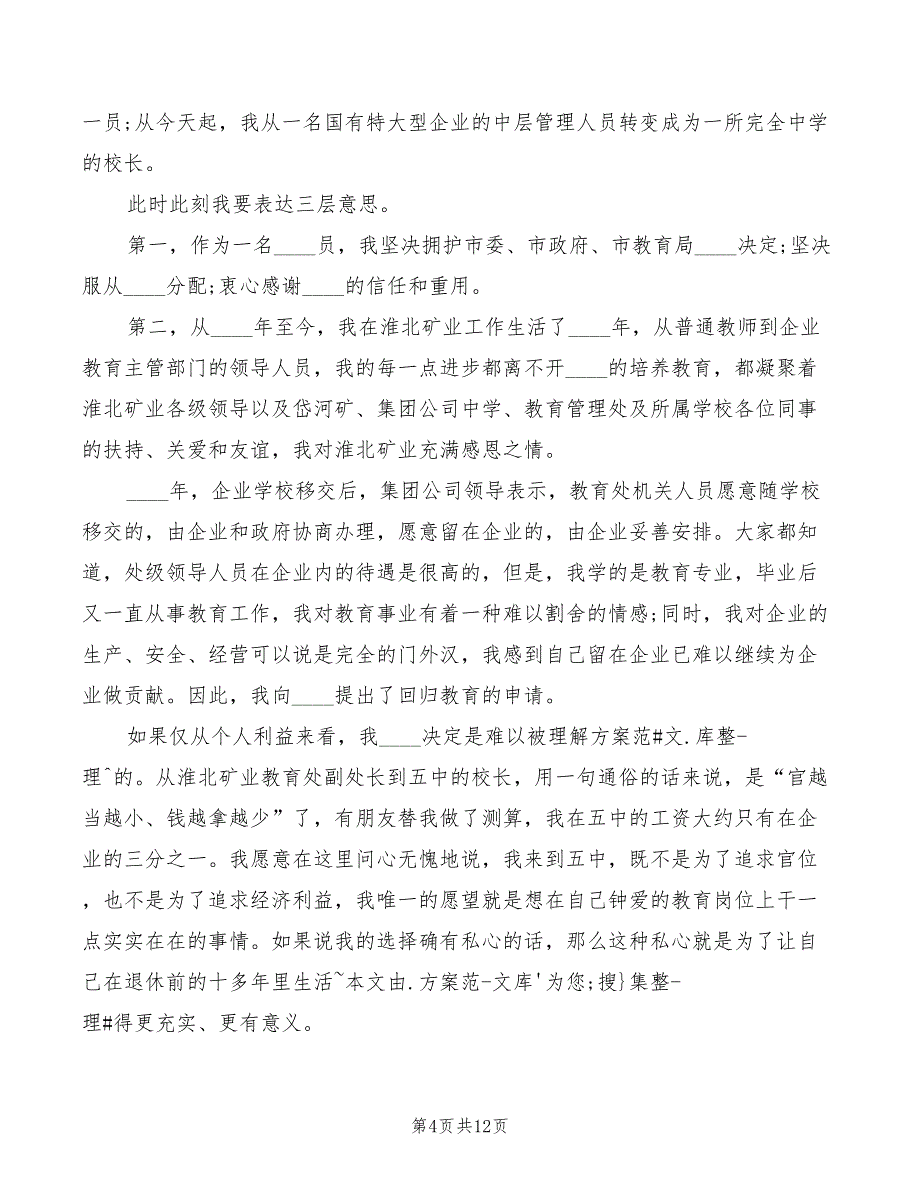 一员;从今天起，我从一名国有特大型企业的中层管理人员转变成为一所完全中学
的校长。
此时此刻我要表达三层意思。
第一，作为一名____员，我坚决拥护市委、市政府、市教育局____决定;坚决
服从____分配;衷心感谢____的信任和重用。
第二，从____年至今，我在淮北矿业工作生活了____年，从普通教师到企业
教育主管部门的领导人员，我的每一点进步都离不开____的培养教育，都凝聚着
淮北矿业各级领导以及岱河矿、集团公司中学、教育管理处及所属学校各位同事
的扶持、关爱和友谊，我对淮北矿业充满感恩之情。
____年，企业学校移交后，集团公司领导表示，教育处机关人员愿意随学校
移交的，由企业和政府协商办理，愿意留在企业的，由企业妥善安排。大家都知
道，处级领导人员在企业内的待遇是很高的，但是，我学的是教育专业，毕业后
又一直从事教育工作，我对教育事业有着一种难以割舍的情感;同时，我对企业的
生产、安全、经营可以说是完全的门外汉，我感到自己留在企业已难以继续为企
业做贡献。因此，我向____提出了回归教育的申请。
如果仅从个人利益来看，我____决定是难以被理解方案范#文.库整-
理^的。从淮北矿业教育处副处长到五中的校长，用一句通俗的话来说，是“官越
当越小、钱越拿越少”了，有朋友替我做了测算，我在五中的工资大约只有在企
业的三分之一。我愿意在这里问心无愧地说，我来到五中，既不是为了追求官位
，也不是为了追求经济利益，我唯一的愿望就是想在自己钟爱的教育岗位上干一
点实实在在的事情。如果说我的选择确有私心的话，那么这种私心就是为了让自
己在退休前的十多年里生活~本文由.方案范-文库'为您;搜}集整-
理#得更充实、更有意义。
第4页共12页